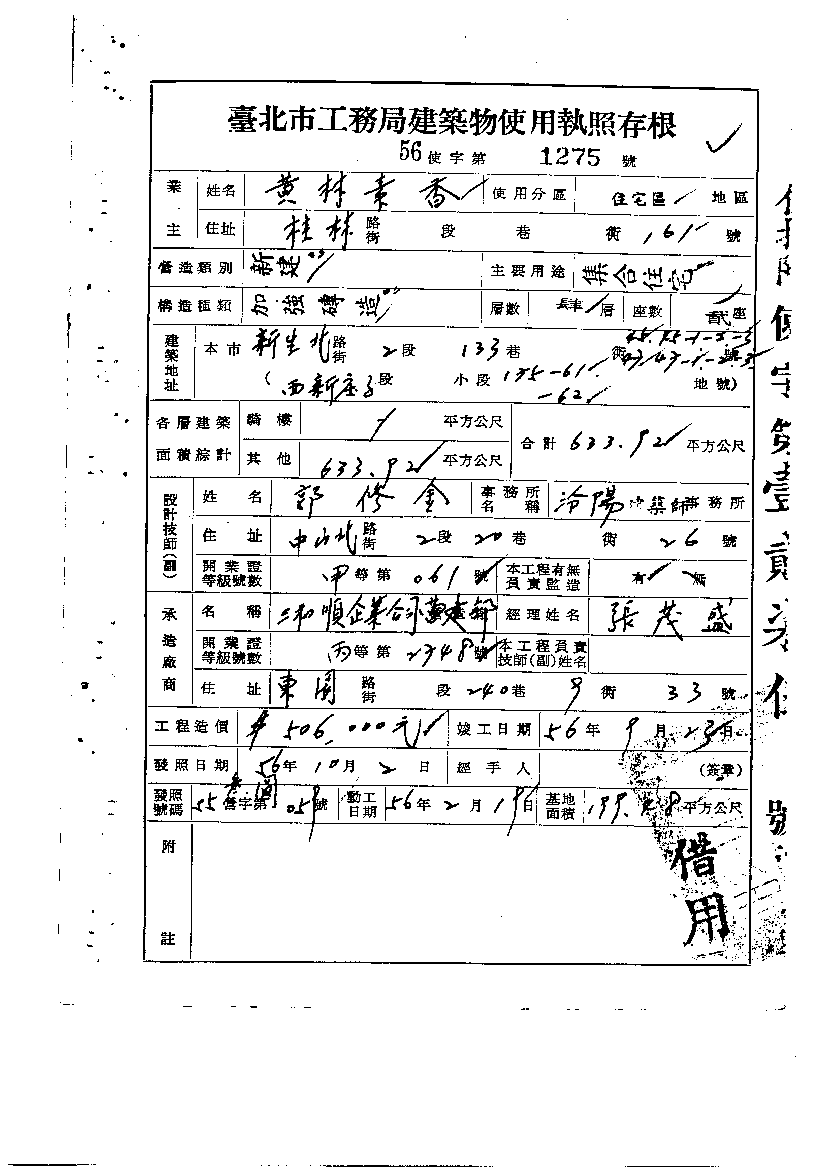 臺北市工務局建築物使用執照存根
56 使字第 1275 號
業主 姓名 黃林素香 使用分區 住宅區 地區
住址 桂林 路街 段 巷 衖 161 號
營造類別 新建 主要用途 集合住宅
構造種類 加強磚造 層數 肆 層 座數 貳 座
建築地址 本市 新生北 路街 2 段 133 巷 衖 45.45-1-2-3 號
47.47-1-2-3
(西新庄子段 小段 175-61 地號)
-62
各層建築面積綜計 騎樓 / 平方公尺 合計 633.92 平方公尺
其他 633.92 平方公尺
設計技師(副) 姓名 郭修金 事務所名稱 汾陽建築師事務所
住址 中山北 路街 2 段 20 巷 衖 26 號
開業證等級號數 甲 等第 061 號 本工程有無負責監造 有 無
承造廠商 名稱 順企業公司 經理姓名 張茂盛
開業證等級號數 丙 等第 2348 號 本工程負責技師(副)姓名
住址 東園 路街 段 240 巷 9 衖 33 號
工程造價 506,000元 竣工日期 56 年 9 月 23 日
發照日期 56 年 10 月 2 日 經手人 (簽章)
發照號碼 55 營字第 059 號 動工日期 56 年 2 月 19 日 基地面積 199.48 平方公尺
附註
借用
使字第壹貳柒伍號